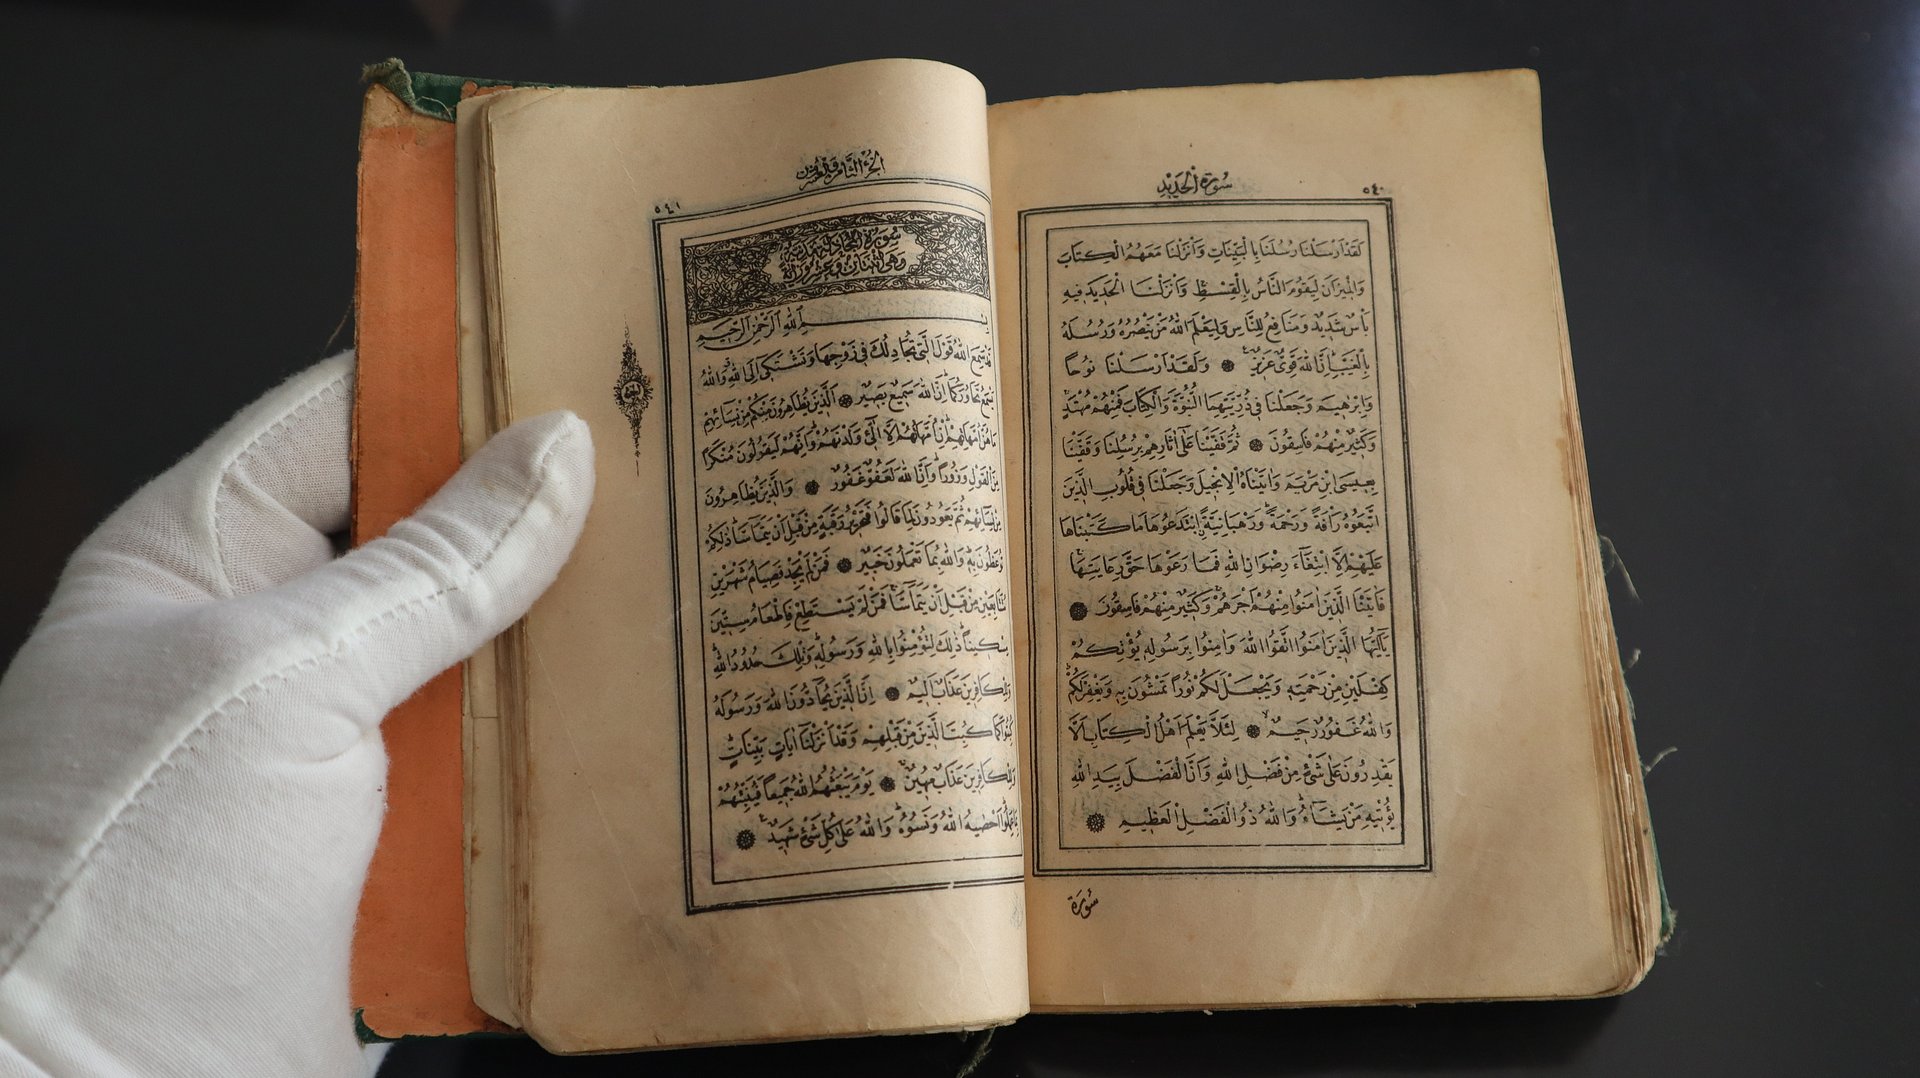 سُورَةُ الْحَدِيدِ
٥٤٠
لَقَدْ اَرْسَلْنَا رُسُلَنَا بِالْبَيِّنَاتِ وَاَنْزَلْنَا مَعَهُمُ الْكِتَابَ
وَالْمِيزَانَ لِيَقُومَ النَّاسُ بِالْقِسْطِ وَاَنْزَلْنَا الْحَدِيدَ فِيهِ
بَأْسٌ شَدِيدٌ وَمَنَافِعُ لِلنَّاسِ وَلِيَعْلَمَ اللّٰهُ مَنْ يَنْصُرُهُ وَرُسُلَهُ
بِالْغَيْبِ اِنَّ اللّٰهَ قَوِىٌّ عَزِيزٌ ۞ وَلَقَدْ اَرْسَلْنَا نُوحًا
وَاِبْرٰهِيمَ وَجَعَلْنَا فِى ذُرِّيَّتِهِمَا النُّبُوَّةَ وَالْكِتَابَ فَمِنْهُمْ مُهْتَدٍ
وَكَثِيرٌ مِنْهُمْ فَاسِقُونَ ۞ ثُمَّ قَفَّيْنَا عَلٰى اٰثَارِهِمْ بِرُسُلِنَا وَقَفَّيْنَا
بِعِيسَى ابْنِ مَرْيَمَ وَاٰتَيْنَاهُ الْاِنْجِيلَ وَجَعَلْنَا فِى قُلُوبِ الَّذِينَ
اتَّبَعُوهُ رَأْفَةً وَرَحْمَةً وَرَهْبَانِيَّةً ابْتَدَعُوهَا مَا كَتَبْنَاهَا
عَلَيْهِمْ اِلَّا ابْتِغَٓاءَ رِضْوَانِ اللّٰهِ فَمَا رَعَوْهَا حَقَّ رِعَايَتِهَا
فَاٰتَيْنَا الَّذِينَ اٰمَنُوا مِنْهُمْ اَجْرَهُمْ وَكَثِيرٌ مِنْهُمْ فَاسِقُونَ ۞
يَٓا اَيُّهَا الَّذِينَ اٰمَنُوا اتَّقُوا اللّٰهَ وَاٰمِنُوا بِرَسُولِهِ يُؤْتِكُمْ
كِفْلَيْنِ مِنْ رَحْمَتِهِ وَيَجْعَلْ لَكُمْ نُورًا تَمْشُونَ بِهِ وَيَغْفِرْ لَكُمْ
وَاللّٰهُ غَفُورٌ رَحِيمٌ ۞ لِئَلَّا يَعْلَمَ اَهْلُ الْكِتَابِ اَلَّا
يَقْدِرُونَ عَلٰى شَىْءٍ مِنْ فَضْلِ اللّٰهِ وَاَنَّ الْفَضْلَ بِيَدِ اللّٰهِ
يُؤْتِيهِ مَنْ يَشَٓاءُ وَاللّٰهُ ذُو الْفَضْلِ الْعَظِيمِ ۞
سُورَةُ
الْجُزْءُ الثَّامِنُ وَالْعِشْرُونَ
٥٤١
سُورَةُ الْمُجَادَلَةِ مَدَنِيَّةٌ
وَهِىَ اثْنَتَانِ وَعِشْرُونَ اٰيَةً
بِسْمِ اللّٰهِ الرَّحْمٰنِ الرَّحِيمِ
قَدْ سَمِعَ اللّٰهُ قَوْلَ الَّتِى تُجَادِلُكَ فِى زَوْجِهَا وَتَشْتَكِى اِلَى اللّٰهِ وَاللّٰهُ
يَسْمَعُ تَحَاوُرَكُمَا اِنَّ اللّٰهَ سَمِيعٌ بَصِيرٌ ۞ اَلَّذِينَ يُظَاهِرُونَ مِنْكُمْ مِنْ نِسَائِهِمْ
مَا هُنَّ اُمَّهَاتِهِمْ اِنْ اُمَّهَاتُهُمْ اِلَّا الّٰٓـِٔى وَلَدْنَهُمْ وَاِنَّهُمْ لَيَقُولُونَ مُنْكَرًا
مِنَ الْقَوْلِ وَزُورًا وَاِنَّ اللّٰهَ لَعَفُوٌّ غَفُورٌ ۞ وَالَّذِينَ يُظَاهِرُونَ
مِنْ نِسَائِهِمْ ثُمَّ يَعُودُونَ لِمَا قَالُوا فَتَحْرِيرُ رَقَبَةٍ مِنْ قَبْلِ اَنْ يَتَمَاسَّا ذٰلِكُمْ
تُوعَظُونَ بِهِ وَاللّٰهُ بِمَا تَعْمَلُونَ خَبِيرٌ ۞ فَمَنْ لَمْ يَجِدْ فَصِيَامُ شَهْرَيْنِ
مُتَتَابِعَيْنِ مِنْ قَبْلِ اَنْ يَتَمَاسَّا فَمَنْ لَمْ يَسْتَطِعْ فَاِطْعَامُ سِتِّينَ
مِسْكِينًا ذٰلِكَ لِتُؤْمِنُوا بِاللّٰهِ وَرَسُولِهِ وَتِلْكَ حُدُودُ اللّٰهِ
وَلِلْكَافِرِينَ عَذَابٌ اَلِيمٌ ۞ اِنَّ الَّذِينَ يُحَٓادُّونَ اللّٰهَ وَرَسُولَهُ
كُبِتُوا كَمَا كُبِتَ الَّذِينَ مِنْ قَبْلِهِمْ وَقَدْ اَنْزَلْنَا اٰيَاتٍ بَيِّنَاتٍ
وَلِلْكَافِرِينَ عَذَابٌ مُهِينٌ ۞ يَوْمَ يَبْعَثُهُمُ اللّٰهُ جَمِيعًا فَيُنَبِّئُهُمْ
بِمَا عَمِلُوا اَحْصٰيهُ اللّٰهُ وَنَسُوهُ وَاللّٰهُ عَلٰى كُلِّ شَىْءٍ شَهِيدٌ ۞